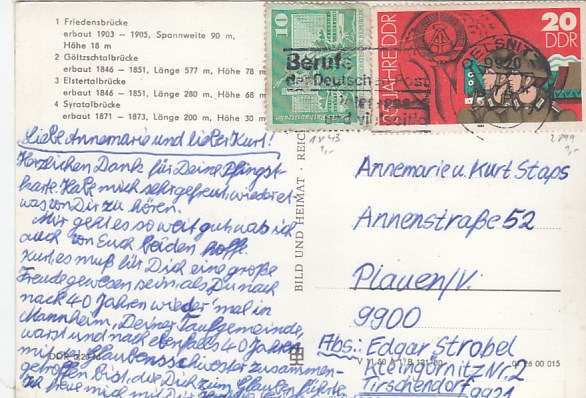 1 Friedensbrücke
erbaut 1903 – 1905, Spannweite 90 m,
Höhe 18 m
2 Göltzschtalbrücke
erbaut 1846 – 1851, Länge 577 m, Höhe 78
3 Elstertalbrücke
erbaut 1846 – 1851, Länge 280 m, Höhe 68
4 Syratalbrücke
erbaut 1871 – 1873, Länge 200 m, Höhe 30
10
JAHRE DDR
20
DDR
Berufe
der Deutschen Post
OELSNITZ
9920
Liebe Annemarie und lieber Kurt!
Herzlichen Dank für Deine Pfingst
karte. Habe mich sehr gefreut, wieder et
was von Dir zu hören.
Mir geht es soweit gut, was ich
auch von Euch beiden hoffe.
Kurt, es muß für Dich eine große
Freude gewesen sein, als Du nach
nach 40 Jahren wieder 'mal in
Mannheim, Deiner Taufgemeinde,
warst und nach ebenfalls 40 Jahren
mit Glaubensschwester zusammen-
getroffen bist, die Dich zum Glauben führte
Ich freue mich mit Dir
BILD UND HEIMAT · REICH
Annemarie u. Kurt Staps
Annenstraße 52
Plauen/V.
9900
Abs: Edgar Strobel
Kleingörnitz Nr. 2
Tirschendorf
9921